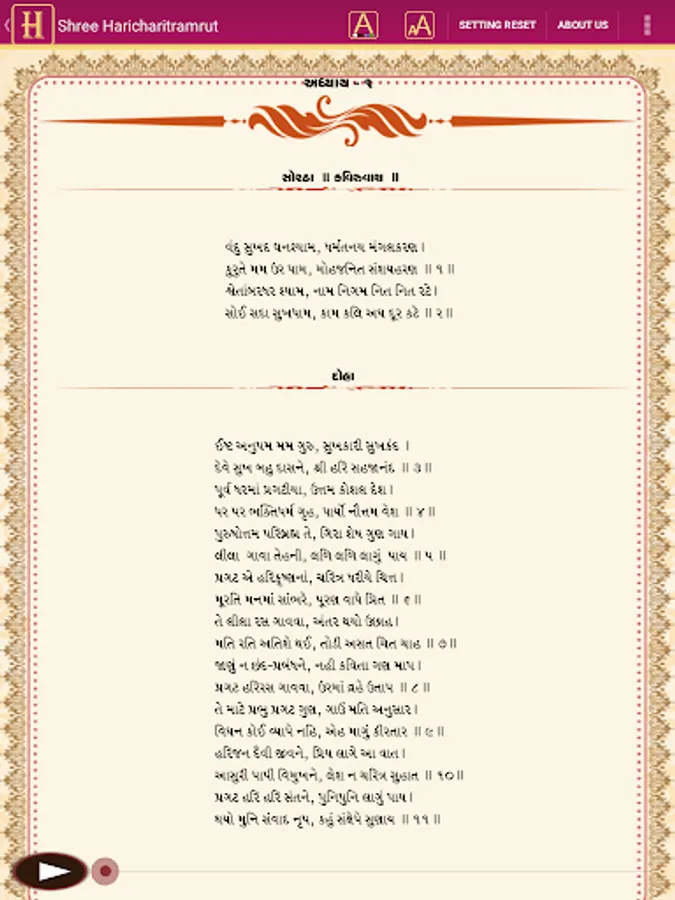 H Shree Haricharitramrut
A
AA
SETTING RESET
ABOUT US
અધ્યાય - ૧
સોરઠા ॥ કવિરુવાચ ॥
વંદુ સુખદ ઘનશ્યામ, ધર્મતનય મંગલકરણ ।
કુરુતે મમ ઉર ધામ, મોહજનિત સંશયહરણ ॥ ૧ ॥
શ્વેતાંબરધર શ્યામ, નામ નિગમ નિત નિત રટે ।
સોઈ સદા સુખધામ, કામ કલિ અઘ દૂર કટે ॥ ૨ ॥
દોહા
ઈષ્ટ અનુપમ મમ ગુરુ, સુખકારી સુખકંદ ।
દેવે સુખ બહુ દાસને, શ્રી હરિ સહજાનંદ ॥ ૩ ॥
પૂર્વ ધરમાં પ્રગટીયા, ઉત્તમ કોશલ દેશ ।
ધર પર ભક્તિધર્મ ગૃહ, ધાર્યો નૌત્તમ વેશ ॥ ૪ ॥
પુરુષોત્તમ પરિબ્રહ્મ તે, ગિરા શેષ ગુણ ગાય ।
લીલા ગાવા તેહની, લળિ લળિ લાગું પાય ॥ ૫ ॥
પ્રગટ એ હરિકૃષ્ણનાં, ચરિત્ર ધરીયે ચિત્ત ।
મૂરતિ મનમાં સાંભરે, પૂરણ વાધે પ્રિત ॥ ૬ ॥
તે લીલા રસ ગાવવા, અંતર થયો ઉછાહ ।
મતિ રતિ અતિશે થઈ, તોડી અસત ચિત ચાહ ॥ ૭ ॥
જાણું ન છંદ-પ્રબંધને, નહી કવિતા ગણ માપ ।
પ્રગટ હરિરસ ગાવવા, ઉરમાં વ્રહે ઉતાપ ॥ ૮ ॥
તે માટે પ્રભુ પ્રગટ ગુણ, ગાઉં મતિ અનુસાર ।
વિઘન કોઈ વ્યાપે નહિ, એહ માગું કીરતાર ॥ ૯ ॥
હરિજન દૈવી જીવને, પ્રિય લાગે આ વાત ।
આસુરી પાપી વિમુખને, લેશ ન ચરિત્ર સુહાત ॥ ૧૦ ॥
પ્રગટ હરિ હરિ સંતને, પુનિપુનિ લાગું પાય ।
થયો મુનિ સંવાદ નૃપ, કહું સંક્ષેપે સુણાય ॥ ૧૧ ॥